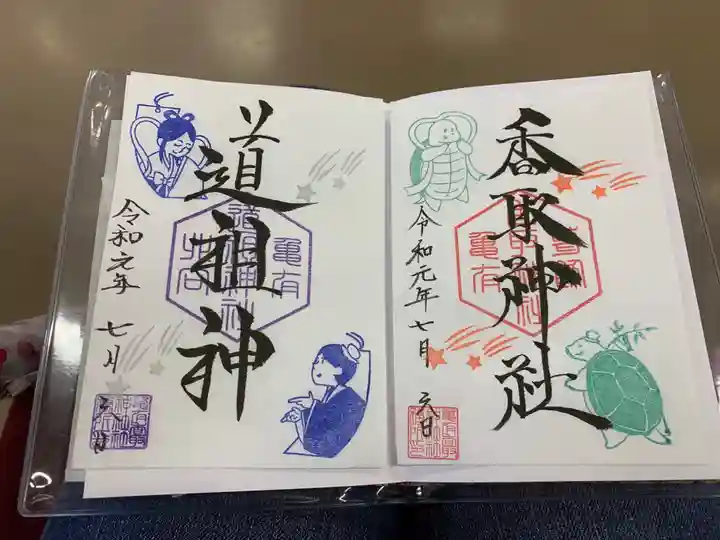 香取神社
亀有
令和元年七月六日
道祖神
亀有
令和元年七月六日